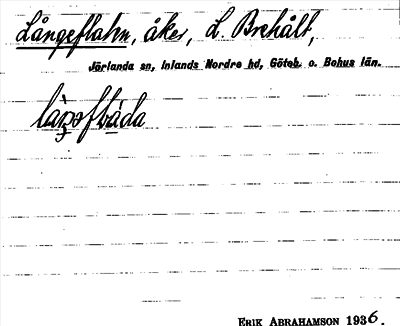 Långeflahn, åker, L. Brehålt,
Jörlanda sn, Inlands Nordre hd, Göteb. o. Bohus län.
ERIK ABRAHAMSON 1936.